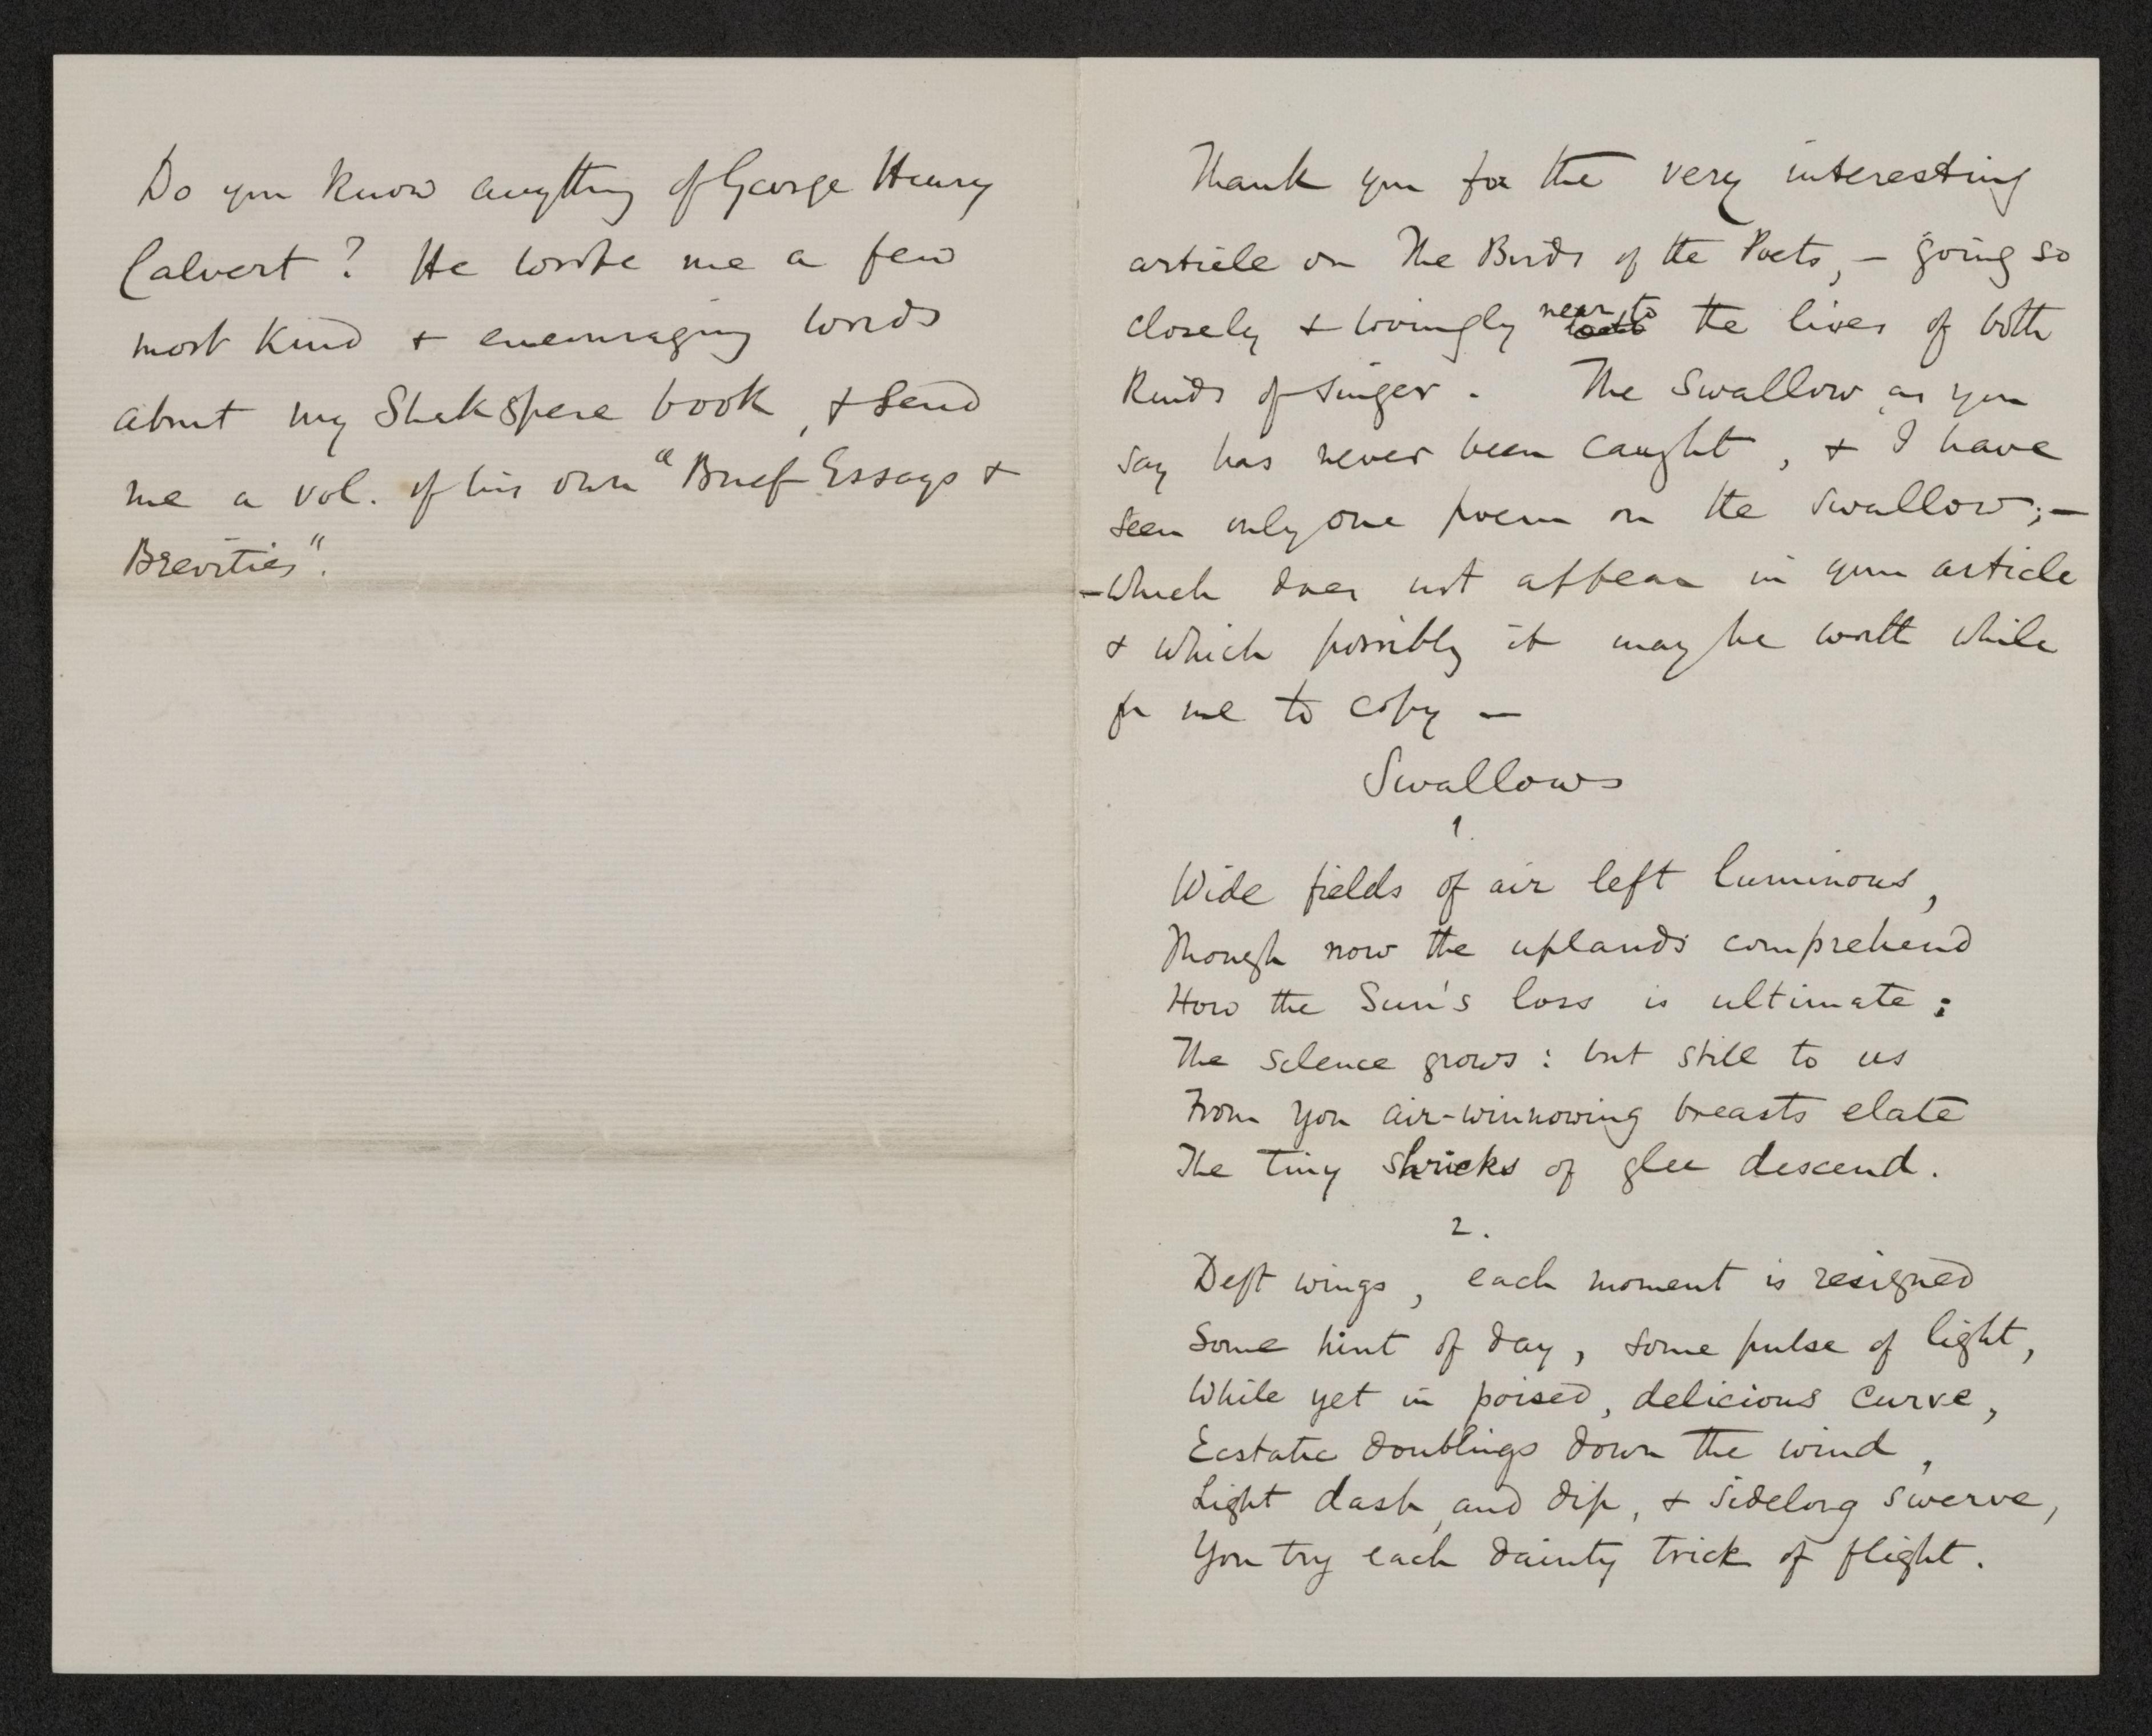 Do you know anything of George Henry
Calvert? He wrote me a few
most kind + encouraging words
about my Shakspere book, + send
me a vol. of his own "Brief Essays +
Brevities".
Thank you for the very interesting
article on The Birds of the Poets, — going so
closely + lovingly near to the lives of both
kinds of singer. The Swallow as you
say has never been caught, + I have
seen only one poem on the swallow; —
— which does not appear in your article
+ which possibly it may be worth while
for me to copy —
Swallows
1.
Wide fields of air left luminous,
Though now the uplands comprehend
How the Sun's loss is ultimate;
The silence grows: but still to us
From yon air-winnowing breasts elate
The tiny shrieks of glee descend.
2.
Deft wings, each moment is resigned
Some hint of day, some pulse of light,
While yet in poised, delicious curve,
Ecstatic doublings down the wind,
Light dash, and dip, + sidelong swerve,
You try each dainty trick of flight.